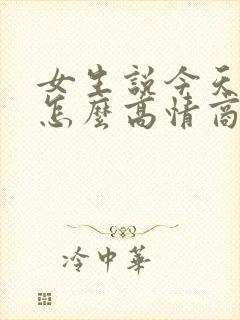 女生説今天
怎麼高情商
冷中華